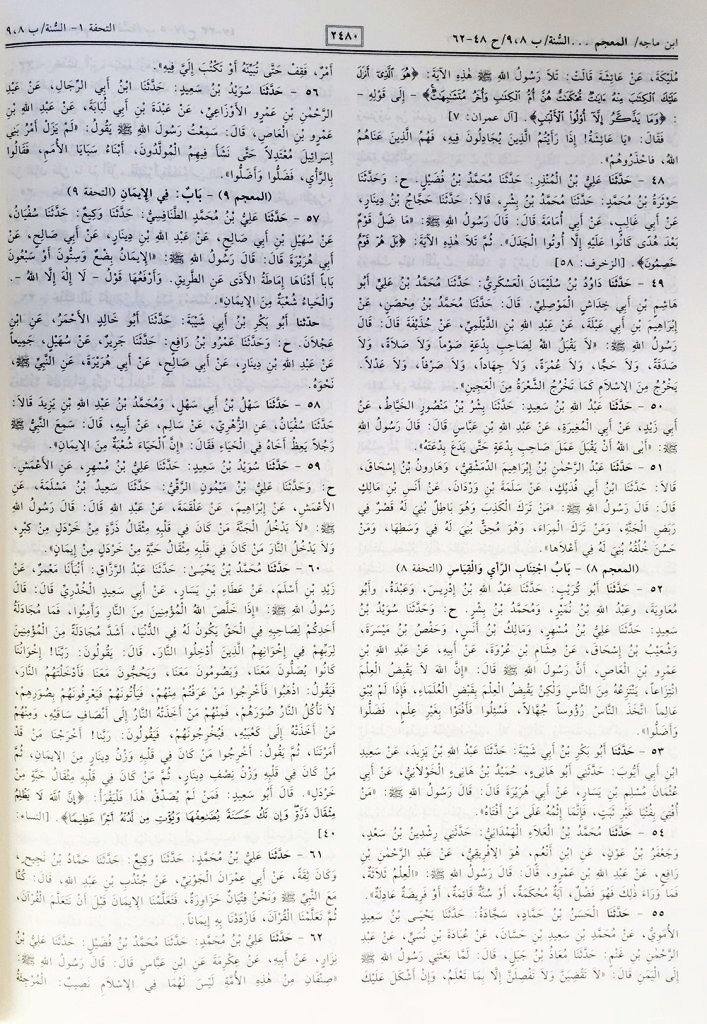 ابن ماجه/ المعجم ...السُّنة/ ب ٩،٨/ ح ٤٨-٦٢
٢٤٨٠
التحفة ١- السُّنة/ ب ٩،٨
مُلَيْكَةَ، عَنْ عَائِشَةَ قَالَتْ: تَلَا رَسُولُ اللهِ ﷺ هٰذِهِ الآيَةَ: ﴿هُوَ الَّذِي أَنزَلَ
عَلَيْكَ الْكِتَابَ مِنْهُ آيَاتٌ مُّحْكَمَاتٌ هُنَّ أُمُّ الْكِتَابِ وَأُخَرُ مُتَشَابِهَاتٌ﴾ - إِلَى قَوْلِهِ -
: ﴿وَمَا يَذَّكَّرُ إِلَّا أُوْلُوا الْأَلْبَابِ﴾. [آل عمران: ٧]
فَقَالَ: «يَا عَائِشَةُ! إِذَا رَأَيْتُمُ الَّذِينَ يُجَادِلُونَ فِيهِ، فَهُمُ الَّذِينَ عَنَاهُمُ
اللهُ، فَاحْذَرُوهُمْ».
٤٨ - حَدَّثَنَا عَلِيُّ بْنُ الْمُنْذِرِ: حَدَّثَنَا مُحَمَّدُ بْنُ فُضَيْلٍ. ح: وَحَدَّثَنَا
حَوْثَرَةُ بْنُ مُحَمَّدٍ: حَدَّثَنَا مُحَمَّدُ بْنُ بِشْرٍ، قَالَا: حَدَّثَنَا حَجَّاجُ بْنُ دِينَارٍ،
عَنْ أَبِي غَالِبٍ، عَنْ أَبِي أُمَامَةَ قَالَ: قَالَ رَسُولُ اللهِ ﷺ: «مَا ضَلَّ قَوْمٌ
بَعْدَ هُدًى كَانُوا عَلَيْهِ إِلَّا أُوتُوا الْجَدَلَ». ثُمَّ تَلَا هٰذِهِ الآيَةَ: ﴿بَلْ هُمْ قَوْمٌ
خَصِمُونَ﴾. [الزخرف: ٥٨]
٤٩ - حَدَّثَنَا دَاوُدُ بْنُ سُلَيْمَانَ الْعَسْكَرِيُّ: حَدَّثَنَا مُحَمَّدُ بْنُ عَلِيٍّ أَبُو
هَاشِمِ بْنِ أَبِي خِدَاشٍ الْمَوْصِلِيُّ. قَالَ: حَدَّثَنَا مُحَمَّدُ بْنُ مِحْصَنٍ، عَنْ
إِبْرَاهِيمَ بْنِ أَبِي عَبْلَةَ، عَنْ عَبْدِ اللهِ بْنِ الدَّيْلَمِيِّ، عَنْ حُذَيْفَةَ قَالَ: قَالَ
رَسُولُ اللهِ ﷺ: «لَا يَقْبَلُ اللهُ لِصَاحِبِ بِدْعَةٍ صَوْماً وَلَا صَلَاةً، وَلَا
صَدَقَةً، وَلَا حَجًّا، وَلَا عُمْرَةً، وَلَا جِهَاداً، وَلَا صَرْفاً، وَلَا عَدْلاً.
يَخْرُجُ مِنَ الإِسْلَامِ كَمَا تَخْرُجُ الشَّعْرَةُ مِنَ الْعَجِينِ».
٥٠ - حَدَّثَنَا عَبْدُ اللهِ بْنُ سَعِيدٍ: حَدَّثَنَا بِشْرُ بْنُ مَنْصُورٍ الْخَيَّاطُ، عَنْ
أَبِي زَيْدٍ، عَنْ أَبِي الْمُغِيرَةِ، عَنْ عَبْدِ اللهِ بْنِ عَبَّاسٍ قَالَ: قَالَ رَسُولُ اللهِ
ﷺ: «أَبَى اللهُ أَنْ يَقْبَلَ عَمَلَ صَاحِبِ بِدْعَةٍ حَتَّى يَدَعَ بِدْعَتَهُ».
٥١ - حَدَّثَنَا عَبْدُ الرَّحْمٰنِ بْنُ إِبْرَاهِيمَ الدِّمَشْقِيُّ، وَهَارُونُ بْنُ إِسْحَاقَ،
قَالَا: حَدَّثَنَا ابْنُ أَبِي فُدَيْكٍ، عَنْ سَلَمَةَ بْنِ وَرْدَانَ، عَنْ أَنَسِ بْنِ مَالِكٍ
قَالَ: قَالَ رَسُولُ اللهِ ﷺ: «مَنْ تَرَكَ الْكَذِبَ وَهُوَ بَاطِلٌ بُنِيَ لَهُ قَصْرٌ فِي
رَبَضِ الْجَنَّةِ، وَمَنْ تَرَكَ الْمِرَاءَ، وَهُوَ مُحِقٌّ بُنِيَ لَهُ فِي وَسَطِهَا، وَمَنْ
حَسَّنَ خُلُقَهُ بُنِيَ لَهُ فِي أَعْلَاهَا».
(المعجم ٨) - بَابُ اجْتِنَابِ الرَّأْيِ وَالْقِيَاسِ (التحفة ٨)
٥٢ - حَدَّثَنَا أَبُو كُرَيْبٍ: حَدَّثَنَا عَبْدُ اللهِ بْنُ إِدْرِيسَ، وَعَبْدَةُ، وأَبُو
مُعَاوِيَةَ، وعَبْدُ اللهِ بْنُ نُمَيْرٍ، وَمُحَمَّدُ بْنُ بِشْرٍ. ح: وَحَدَّثَنَا سُوَيْدُ بْنُ
سَعِيدٍ: حَدَّثَنَا عَلِيُّ بْنُ مُسْهِرٍ، وَمَالِكُ بْنُ أَنَسٍ، وَحَفْصُ بْنُ مَيْسَرَةَ،
وَشُعَيْبُ بْنُ إِسْحَاقَ، عَنْ هِشَامِ بْنِ عُرْوَةَ، عَنْ أَبِيهِ، عَنْ عَبْدِ اللهِ بْنِ
عَمْرِو بْنِ الْعَاصِ، أَنَّ رَسُولَ اللهِ ﷺ قَالَ: «إِنَّ اللهَ لَا يَقْبِضُ الْعِلْمَ
انْتِزَاعاً، يَنْتَزِعُهُ مِنَ النَّاسِ وَلٰكِنْ يَقْبِضُ الْعِلْمَ بِقَبْضِ الْعُلَمَاءِ، فَإِذَا لَمْ يُبْقِ
عَالِماً اتَّخَذَ النَّاسُ رُؤُوساً جُهَّالاً، فَسُئِلُوا فَأَفْتَوْا بِغَيْرِ عِلْمٍ، فَضَلُّوا
وَأَضَلُّوا».
٥٣ - حَدَّثَنَا أَبُو بَكْرِ بْنُ أَبِي شَيْبَةَ: حَدَّثَنَا عَبْدُ اللهِ بْنُ يَزِيدَ، عَنْ سَعِيدِ
ابْنِ أَبِي أَيُّوبَ: حَدَّثَنِي أَبُو هَانِىءٍ، حُمَيْدُ بْنُ هَانِىءٍ الْخَوْلَانِيُّ، عَنْ أَبِي
عُثْمَانَ مُسْلِمِ بْنِ يَسَارٍ، عَنْ أَبِي هُرَيْرَةَ قَالَ: قَالَ رَسُولُ اللهِ ﷺ: «مَنْ
أُفْتِيَ بِفُتْيَا غَيْرِ ثَبَتٍ، فَإِنَّمَا إِثْمُهُ عَلَى مَنْ أَفْتَاهُ».
٥٤ - حَدَّثَنَا مُحَمَّدُ بْنُ الْعَلَاءِ الْهَمْدَانِيُّ: حَدَّثَنِي رِشْدِينُ بْنُ سَعْدٍ،
وَجَعْفَرُ بْنُ عَوْنٍ، عَنِ ابْنِ أَنْعُمٍ، هُوَ الإِفْرِيقِيُّ، عَنْ عَبْدِ الرَّحْمٰنِ بْنِ
رَافِعٍ، عَنْ عَبْدِ اللهِ بْنِ عَمْرٍو، قَالَ: قَالَ رَسُولُ اللهِ ﷺ: «الْعِلْمُ ثَلَاثَةٌ،
فَمَا وَرَاءَ ذٰلِكَ فَهُوَ فَضْلٌ، آيَةٌ مُحْكَمَةٌ، أَوْ سُنَّةٌ قَائِمَةٌ، أَوْ فَرِيضَةٌ عَادِلَةٌ».
٥٥ - حَدَّثَنَا الْحَسَنُ بْنُ حَمَّادٍ، سَجَّادَةُ: حَدَّثَنَا يَحْيَى بْنُ سَعِيدٍ
الأُمَوِيُّ، عَنْ مُحَمَّدِ بْنِ سَعِيدِ بْنِ حَسَّانَ، عَنْ عُبَادَةَ بْنِ نُسَيٍّ، عَنْ عَبْدِ
الرَّحْمٰنِ بْنِ غَنْمٍ: حَدَّثَنَا مُعَاذُ بْنُ جَبَلٍ، قَالَ: لَمَّا بَعَثَنِي رَسُولُ اللهِ ﷺ
إِلَى الْيَمَنِ قَالَ: «لَا تَقْضِيَنَّ وَلَا تَفْصِلَنَّ إِلَّا بِمَا تَعْلَمُ، وَإِنْ أَشْكَلَ عَلَيْكَ
أَمْرٌ، فَقِفْ حَتَّى تُبَيِّنَهُ أَوْ تَكْتُبَ إِلَيَّ فِيهِ».
٥٦ - حَدَّثَنَا سُوَيْدُ بْنُ سَعِيدٍ: حَدَّثَنَا ابْنُ أَبِي الرِّجَالِ، عَنْ عَبْدِ
الرَّحْمٰنِ بْنِ عَمْرٍو الأَوْزَاعِيِّ، عَنْ عَبْدَةَ بْنِ أَبِي لُبَابَةَ، عَنْ عَبْدِ اللهِ بْنِ
عَمْرِو بْنِ الْعَاصِ، قَالَ: سَمِعْتُ رَسُولَ اللهِ ﷺ يَقُولُ: «لَمْ يَزَلْ أَمْرُ بَنِي
إِسْرَائِيلَ مُعْتَدِلاً حَتَّى نَشَأَ فِيهِمُ الْمُوَلَّدُونَ، أَبْنَاءُ سَبَايَا الأُمَمِ، فَقَالُوا
بِالرَّأْيِ، فَضَلُّوا وَأَضَلُّوا».
(المعجم ٩) - بَابٌ: فِي الإِيمَانِ (التحفة ٩)
٥٧ - حَدَّثَنَا عَلِيُّ بْنُ مُحَمَّدٍ الطَّنَافِسِيُّ: حَدَّثَنَا وَكِيعٌ: حَدَّثَنَا سُفْيَانُ،
عَنْ سُهَيْلِ بْنِ أَبِي صَالِحٍ، عَنْ عَبْدِ اللهِ بْنِ دِينَارٍ، عَنْ أَبِي صَالِحٍ، عَنْ
أَبِي هُرَيْرَةَ قَالَ: قَالَ رَسُولُ اللهِ ﷺ: «الإِيمَانُ بِضْعٌ وَسِتُّونَ أَوْ سَبْعُونَ
بَاباً أَدْنَاهَا إِمَاطَةُ الأَذَى عَنِ الطَّرِيقِ. وَأَرْفَعُهَا قَوْلُ - لَا إِلٰهَ إِلَّا اللهُ -.
وَالْحَيَاءُ شُعْبَةٌ مِنَ الإِيمَانِ».
حدثنا أَبُو بَكْرِ بْنُ أَبِي شَيْبَةَ: حَدَّثَنَا أَبُو خَالِدٍ الأَحْمَرُ، عَنِ ابْنِ
عَجْلَانَ. ح: وَحَدَّثَنَا عَمْرُو بْنُ رَافِعٍ: حَدَّثَنَا جَرِيرٌ، عَنْ سُهَيْلٍ، جَمِيعاً
عَنْ عَبْدِ اللهِ بْنِ دِينَارٍ، عَنْ أَبِي صَالِحٍ، عَنْ أَبِي هُرَيْرَةَ، عَنِ النَّبِيِّ ﷺ،
نَحْوَهُ.
٥٨ - حَدَّثَنَا سَهْلُ بْنُ أَبِي سَهْلٍ، وَمُحَمَّدُ بْنُ عَبْدِ اللهِ بْنِ يَزِيدَ قَالَا:
حَدَّثَنَا سُفْيَانُ، عَنِ الزُّهْرِيِّ، عَنْ سَالِمٍ، عَنْ أَبِيهِ، قَالَ: سَمِعَ النَّبِيُّ ﷺ
رَجُلاً يَعِظُ أَخَاهُ فِي الْحَيَاءِ فَقَالَ: «إِنَّ الْحَيَاءَ شُعْبَةٌ مِنَ الإِيمَانِ».
٥٩ - حَدَّثَنَا سُوَيْدُ بْنُ سَعِيدٍ: حَدَّثَنَا عَلِيُّ بْنُ مُسْهِرٍ، عَنِ الأَعْمَشِ.
ح: وَحَدَّثَنَا عَلِيُّ بْنُ مَيْمُونٍ الرَّقِّيُّ: حَدَّثَنَا سَعِيدُ بْنُ مَسْلَمَةَ، عَنِ
الأَعْمَشِ، عَنْ إِبْرَاهِيمَ، عَنْ عَلْقَمَةَ، عَنْ عَبْدِ اللهِ قَالَ: قَالَ رَسُولُ اللهِ
ﷺ: «لَا يَدْخُلُ الْجَنَّةَ مَنْ كَانَ فِي قَلْبِهِ مِثْقَالُ ذَرَّةٍ مِنْ خَرْدَلٍ مِنْ كِبْرٍ،
وَلَا يَدْخُلُ النَّارَ مَنْ كَانَ فِي قَلْبِهِ مِثْقَالُ حَبَّةٍ مِنْ خَرْدَلٍ مِنْ إِيمَانٍ».
٦٠ - حَدَّثَنَا مُحَمَّدُ بْنُ يَحْيَىٰ: حَدَّثَنَا عَبْدُ الرَّزَّاقِ: أَنْبَأَنَا مَعْمَرٌ، عَنْ
زَيْدِ بْنِ أَسْلَمَ، عَنْ عَطَاءِ بْنِ يَسَارٍ، عَنْ أَبِي سَعِيدٍ الْخُدْرِيِّ قَالَ: قَالَ
رَسُولُ اللهِ ﷺ: «إِذَا خَلَّصَ اللهُ الْمُؤْمِنِينَ مِنَ النَّارِ وَأَمِنُوا، فَمَا مُجَادَلَةُ
أَحَدِكُمْ لِصَاحِبِهِ فِي الْحَقِّ يَكُونُ لَهُ فِي الدُّنْيَا، أَشَدَّ مُجَادَلَةً مِنَ الْمُؤْمِنِينَ
لِرَبِّهِمْ فِي إِخْوَانِهِمُ الَّذِينَ أُدْخِلُوا النَّارَ. قَالَ: يَقُولُونَ: رَبَّنَا! إِخْوَانُنَا
كَانُوا يُصَلُّونَ مَعَنَا، وَيَصُومُونَ مَعَنَا، وَيَحُجُّونَ مَعَنَا فَأَدْخَلْتَهُمُ النَّارَ،
فَيَقُولُ: اذْهَبُوا فَأَخْرِجُوا مَنْ عَرَفْتُمْ مِنْهُمْ، فَيَأْتُونَهُمْ فَيَعْرِفُونَهُمْ بِصُوَرِهِمْ،
لَا تَأْكُلُ النَّارُ صُوَرَهُمْ، فَمِنْهُمْ مَنْ أَخَذَتْهُ النَّارُ إِلَى أَنْصَافِ سَاقَيْهِ، وَمِنْهُمْ
مَنْ أَخَذَتْهُ إِلَى كَعْبَيْهِ، فَيُخْرِجُونَهُمْ، فَيَقُولُونَ: رَبَّنَا! أَخْرَجْنَا مَنْ قَدْ
أَمَرْتَنَا، ثُمَّ يَقُولُ: أَخْرِجُوا مَنْ كَانَ فِي قَلْبِهِ وَزْنُ دِينَارٍ مِنَ الإِيمَانِ، ثُمَّ
مَنْ كَانَ فِي قَلْبِهِ وَزْنُ نِصْفِ دِينَارٍ، ثُمَّ مَنْ كَانَ فِي قَلْبِهِ مِثْقَالُ حَبَّةٍ مِنْ
خَرْدَلٍ». قَالَ أَبُو سَعِيدٍ: فَمَنْ لَمْ يُصَدِّقْ هٰذَا فَلْيَقْرَأْ: ﴿إِنَّ اللَّهَ لَا يَظْلِمُ
مِثْقَالَ ذَرَّةٍ وَإِن تَكُ حَسَنَةً يُضَاعِفْهَا وَيُؤْتِ مِن لَّدُنْهُ أَجْرًا عَظِيمًا﴾. [النساء:
٤٠]
٦١ - حَدَّثَنَا عَلِيُّ بْنُ مُحَمَّدٍ: حَدَّثَنَا وَكِيعٌ: حَدَّثَنَا حَمَّادُ بْنُ نَجِيحٍ،
وَكَانَ ثِقَةً، عَنْ أَبِي عِمْرَانَ الْجَوْنِيِّ، عَنْ جُنْدُبِ بْنِ عَبْدِ اللهِ، قَالَ: كُنَّا
مَعَ النَّبِيِّ ﷺ وَنَحْنُ فِتْيَانٌ حَزَاوِرَةٌ، فَتَعَلَّمْنَا الإِيمَانَ قَبْلَ أَنْ نَتَعَلَّمَ الْقُرْآنَ،
ثُمَّ تَعَلَّمْنَا الْقُرْآنَ، فَازْدَدْنَا بِهِ إِيمَاناً.
٦٢ - حَدَّثَنَا عَلِيُّ بْنُ مُحَمَّدٍ: حَدَّثَنَا مُحَمَّدُ بْنُ فُضَيْلٍ: حَدَّثَنَا عَلِيُّ بْنُ
نِزَارٍ، عَنْ أَبِيهِ، عَنْ عِكْرِمَةَ عَنِ ابْنِ عَبَّاسٍ قَالَ: قَالَ رَسُولُ اللهِ ﷺ:
«صِنْفَانِ مِنْ هٰذِهِ الأُمَّةِ لَيْسَ لَهُمَا فِي الإِسْلَامِ نَصِيبٌ: الْمُرْجِئَةُ